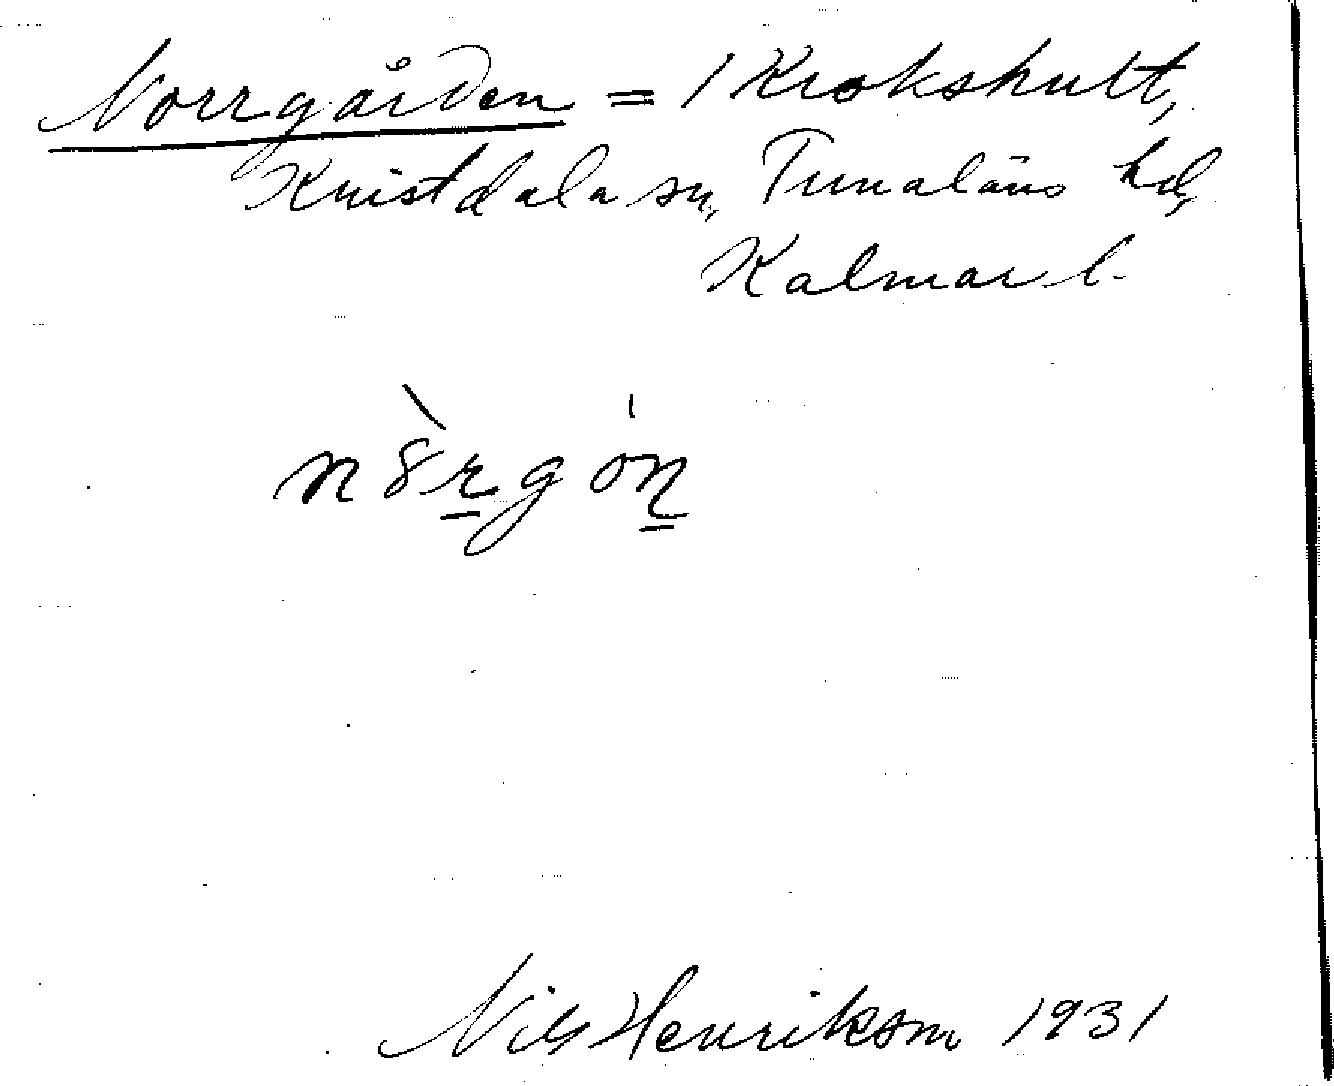 Norrgården = 1 Krokshult,
Kristdala sn, Tunaläns hd,
Kalmar l.
Nils Henriksson 1931